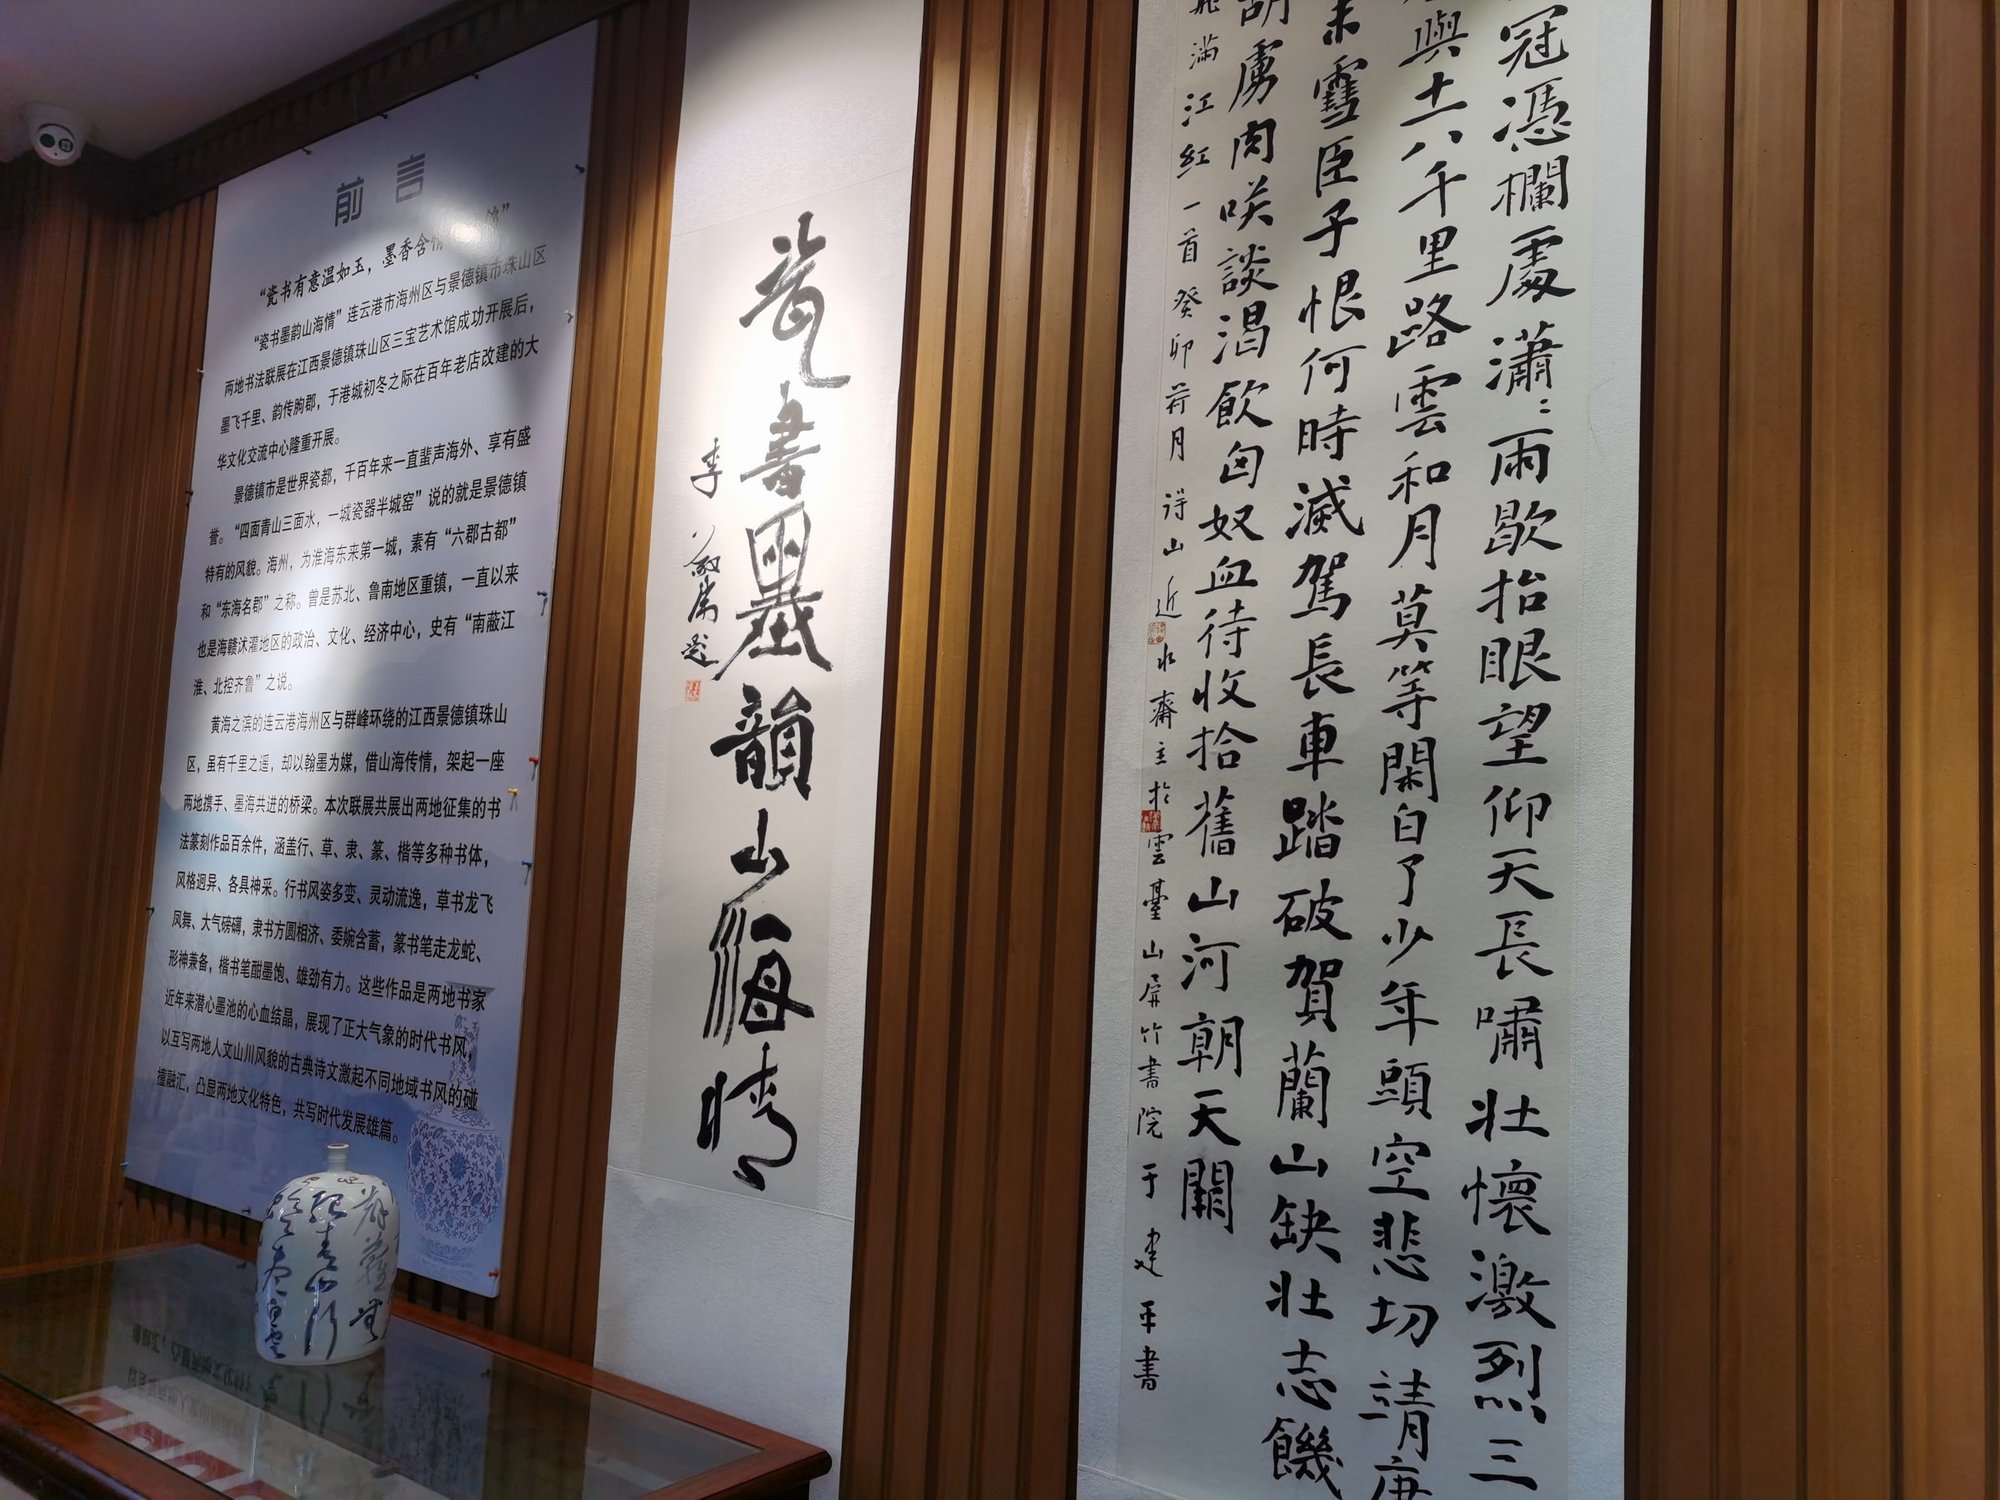 前言
“瓷书有意温如玉，墨香含情
“瓷书墨韵山海情”连云港市海州区与景德镇市珠山区
两地书法联展在江西景德镇珠山区三宝艺术馆成功开展后，
墨飞千里、韵传朐郡，于港城初冬之际在百年老店改建的大
华文化交流中心隆重开展。
景德镇市是世界瓷都，千百年来一直蜚声海外、享有盛
誉。“四面青山三面水，一城瓷器半城窑”说的就是景德镇
特有的风貌。海州，为淮海东来第一城，素有“六郡古都”
和“东海名郡”之称。曾是苏北、鲁南地区重镇，一直以来
也是海赣沭灌地区的政治、文化、经济中心，史有“南蔽江
淮、北控齐鲁”之说。
黄海之滨的连云港海州区与群峰环绕的江西景德镇珠山
区，虽有千里之遥，却以翰墨为媒，借山海传情，架起一座
两地携手、墨海共进的桥梁。本次联展共展出两地征集的书
法篆刻作品百余件，涵盖行、草、隶、篆、楷等多种书体，
风格迥异、各具神采。行书风姿多变、灵动流逸，草书龙飞
凤舞、大气磅礴，隶书方圆相济、委婉含蓄，篆书笔走龙蛇、
形神兼备，楷书笔酣墨饱、雄劲有力。这些作品是两地书家
近年来潜心墨池的心血结晶，展现了正大气象的时代书风，
以互写两地人文山川风貌的古典诗文激起不同地域书风的碰
撞融汇，凸显两地文化特色，共写时代发展雄篇。
瓷書墨韻山海情
李 題
冠憑欄處瀟〻雨歇抬眼望仰天長嘯壯懷激烈三
與土八千里路雲和月莫等閑白了少年頭空悲切靖康
未雪臣子恨何時滅駕長車踏破賀蘭山缺壯志饑
胡虜肉咲談渴飲匈奴血待收拾舊山河朝天闕
飛滿江紅一首癸卯荷月詩山近水齋主於雲臺山屏竹書院于建平書